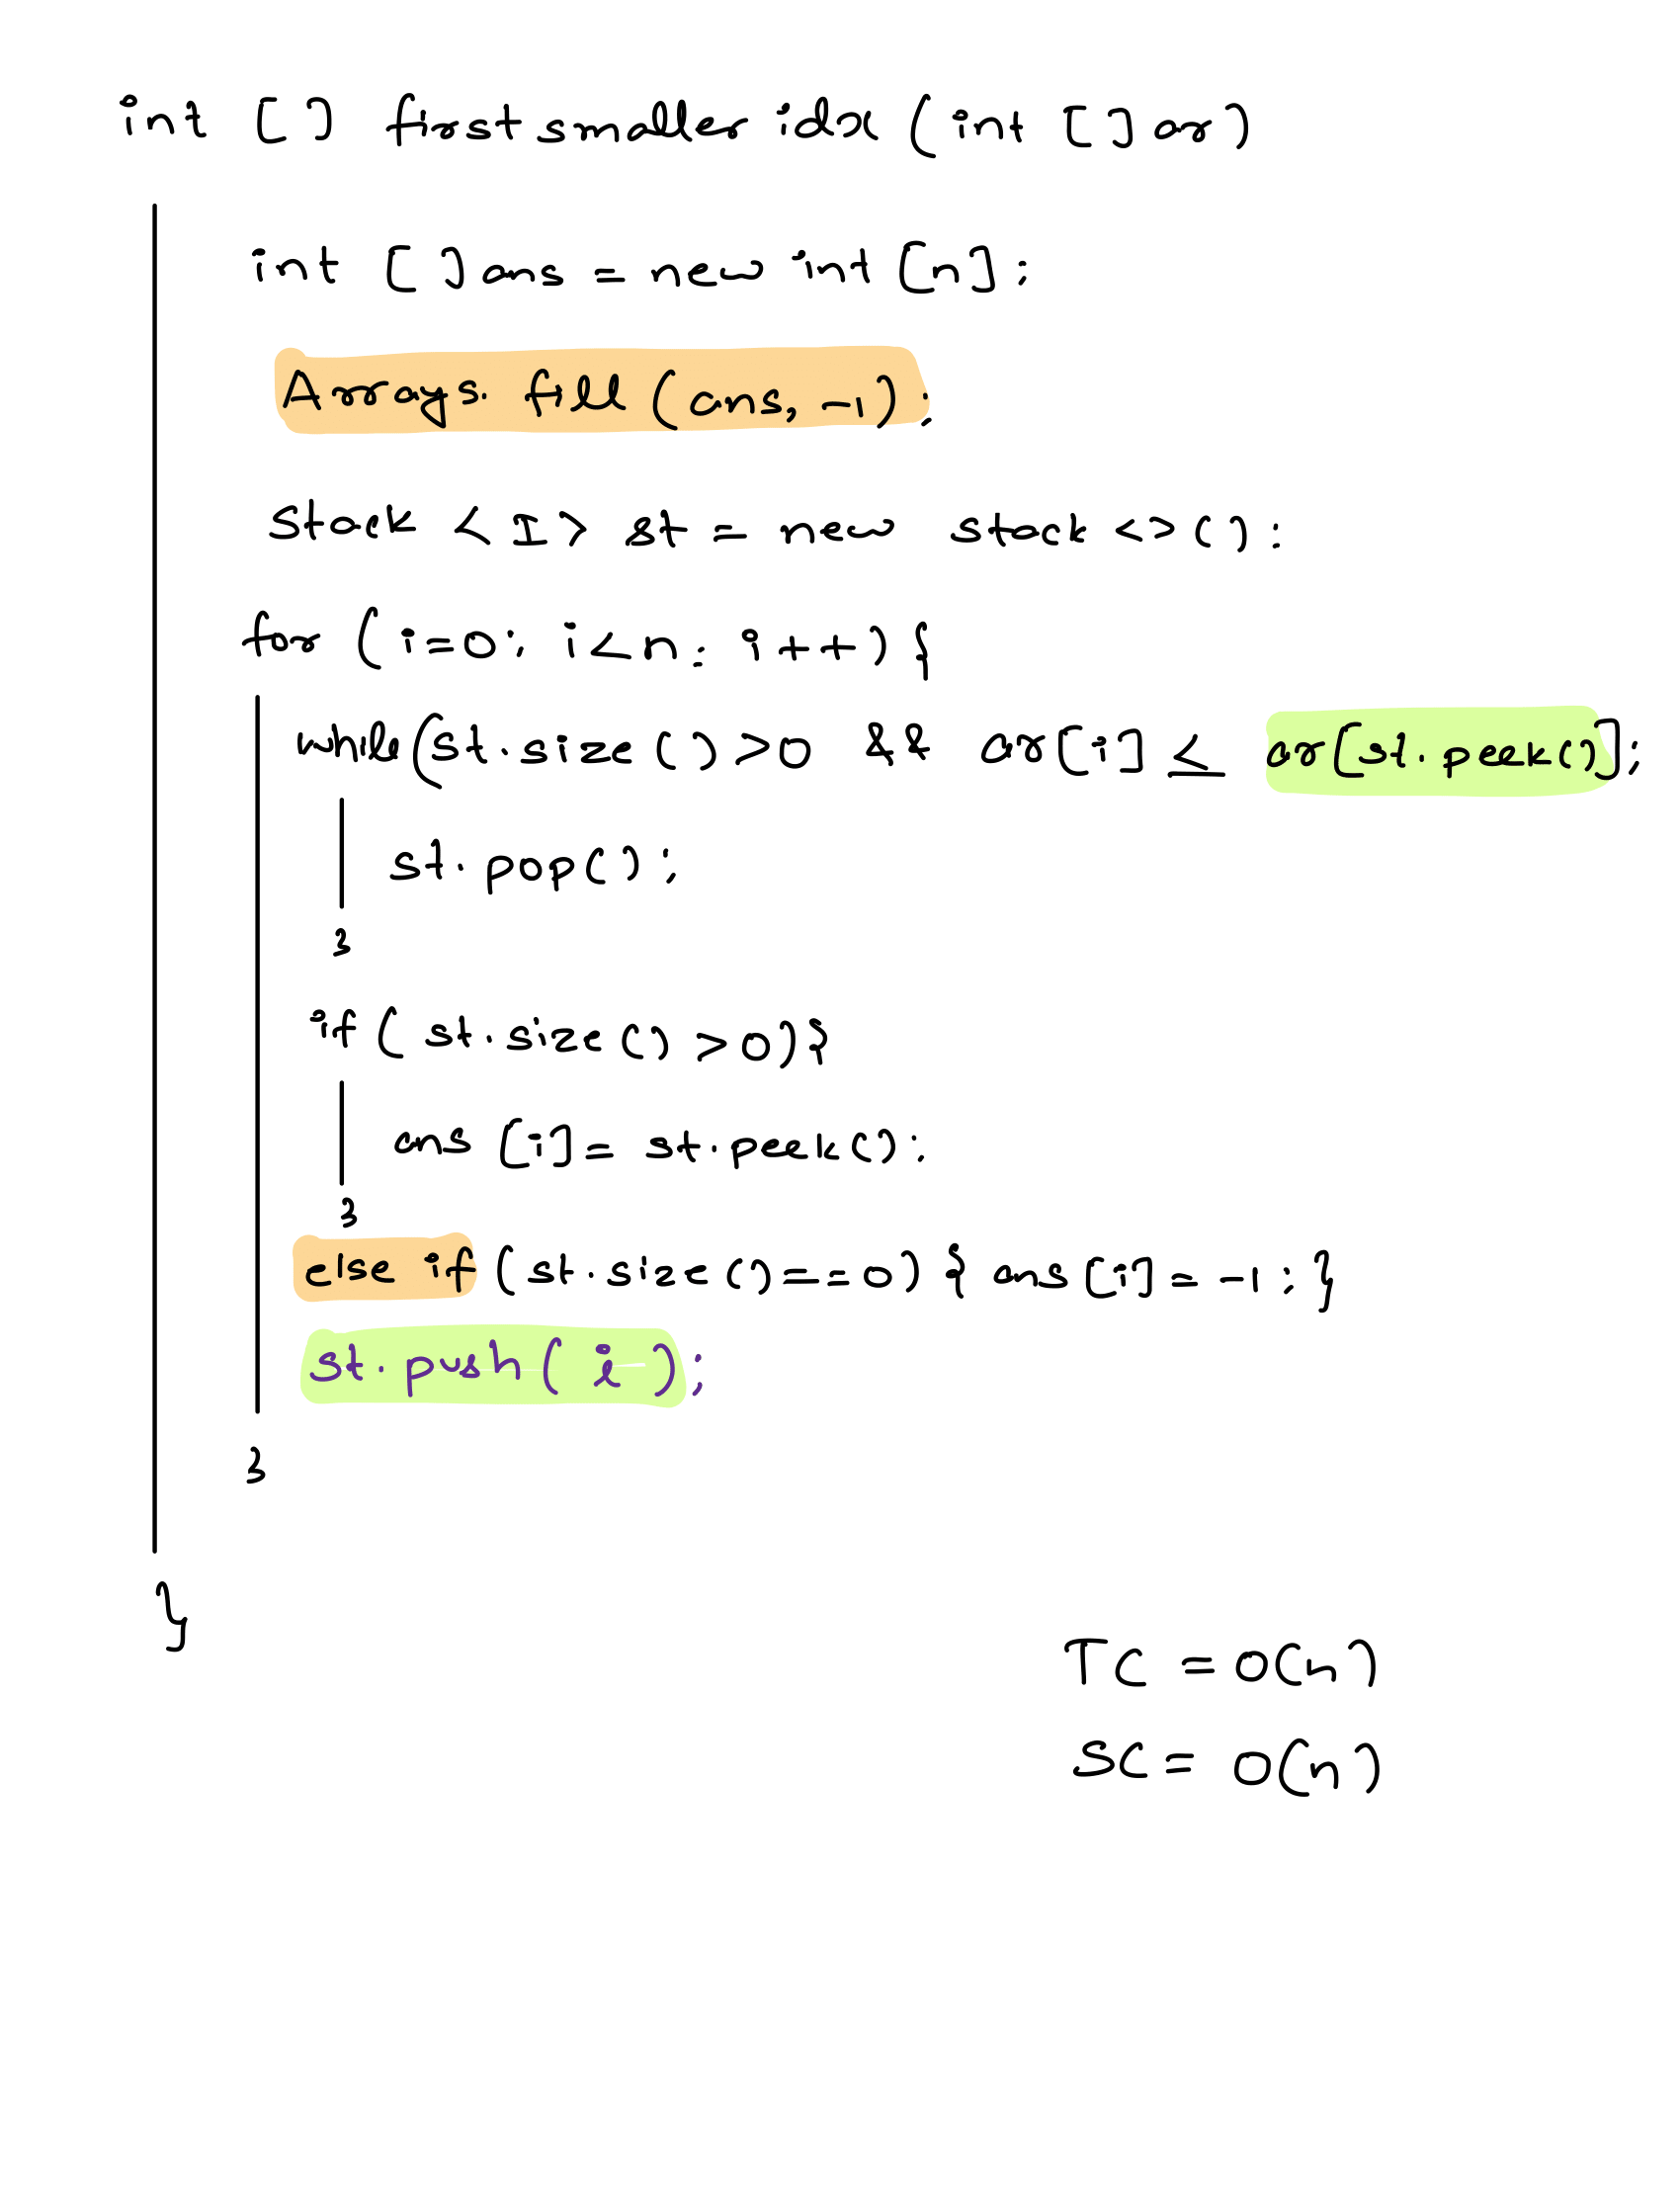 int [] first smaller idx (int [] ar)
int [] ans = new int [n];
Arrays. fill (ans, -1);
stack <I> st = new stack <> ();
for (i=0; i<n; i++) {
while (st.size () >0 && ar[i] ≤ ar[st.peek()];
st.pop();
}
if ( st.size () >0) {
ans [i] = st.peek();
}
else if (st.size () == 0) { ans [i] = -1; }
st.push( i );
}
}
TC = O(n)
SC = O(n)